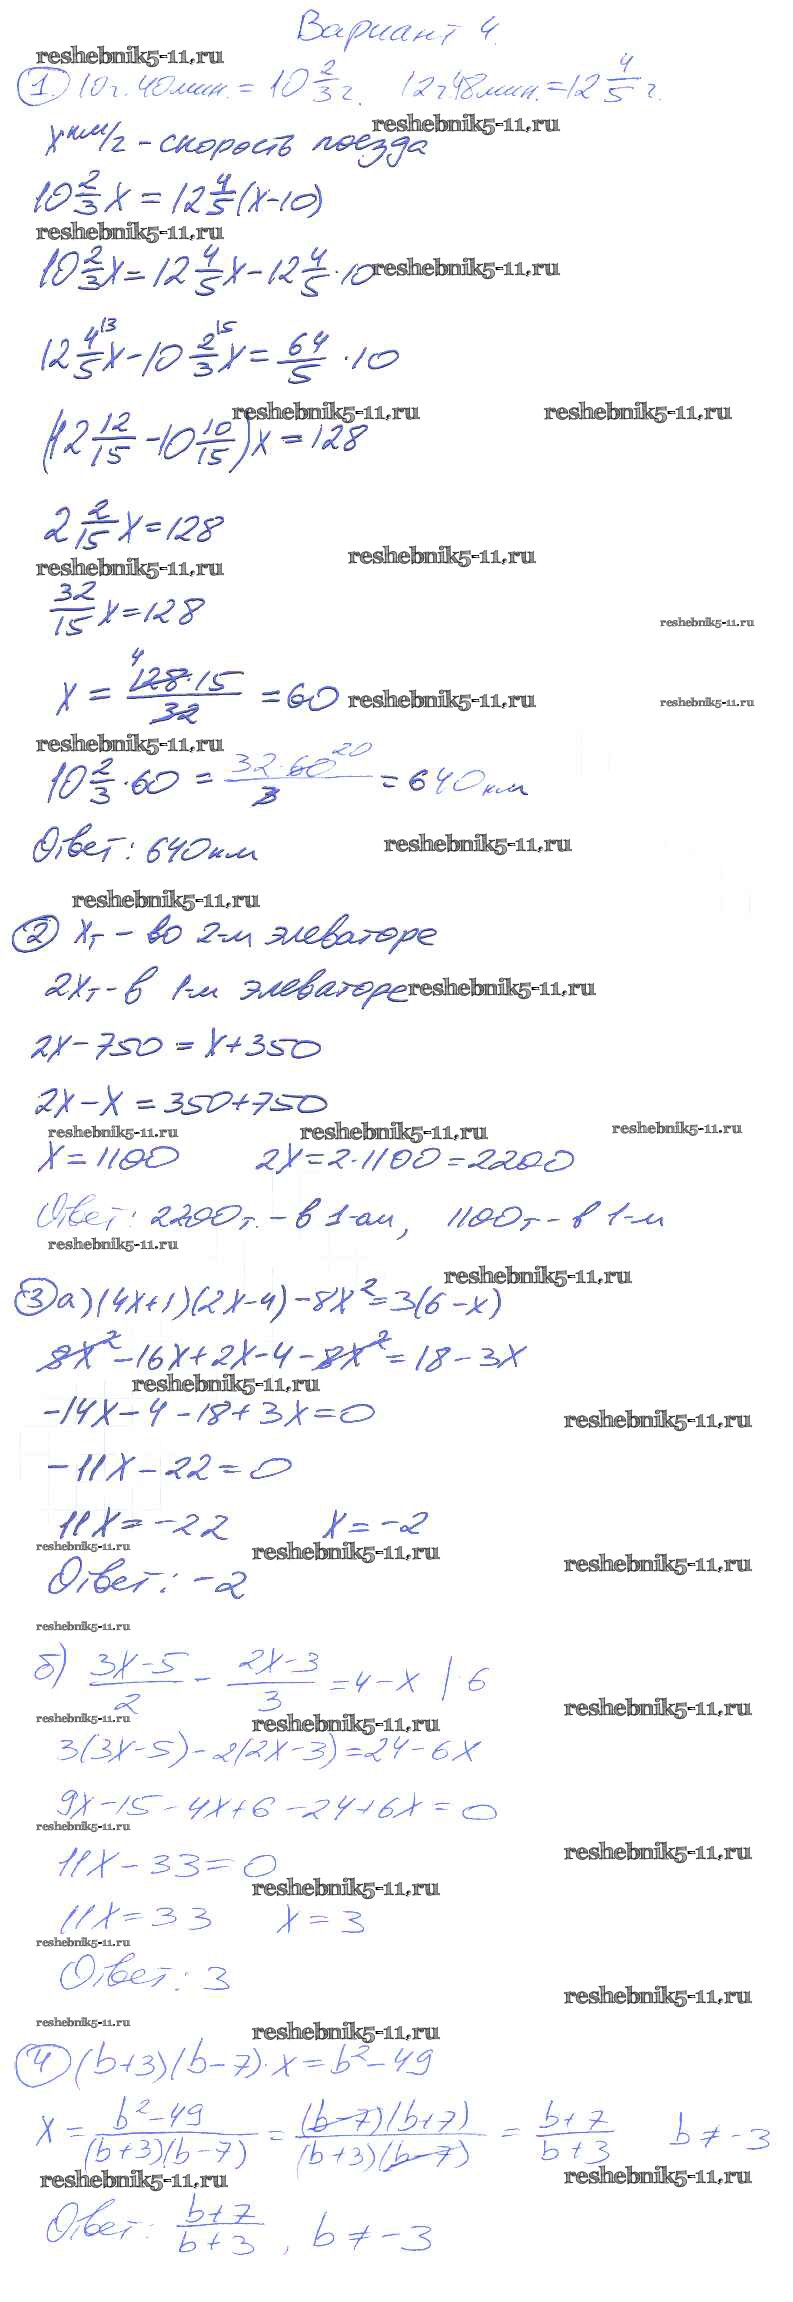 Вариант 4.
reshebnik5-11.ru
1. 10ч. 40мин. = 10 2/3 ч. 12ч48мин. = 12 4/5 ч.
reshebnik5-11.ru
x км/ч - скорость поезда
10 2/3 x = 12 4/5 (x-10)
reshebnik5-11.ru
10 2/3 x = 12 4/5 x - 12 4/5 · 10 reshebnik5-11.ru
12 4/5 \3 x - 10 2/3 \5 x = 64/5 · 10
reshebnik5-11.ru reshebnik5-11.ru
(12 12/15 - 10 10/15) x = 128
2 2/15 x = 128
reshebnik5-11.ru reshebnik5-11.ru
32/15 x = 128
reshebnik5-11.ru
x = 4 128·15/32 = 60 reshebnik5-11.ru reshebnik5-11.ru
reshebnik5-11.ru
10 2/3 · 60 = 32·60 20/3 = 640 км
Ответ: 640 км reshebnik5-11.ru
reshebnik5-11.ru
2 xт - во 2-м элеваторе
2xт - в 1-м элеваторе reshebnik5-11.ru
2x - 750 = x + 350
2x - x = 350 + 750
reshebnik5-11.ru reshebnik5-11.ru reshebnik5-11.ru
x = 1100 2x = 2·1100 = 2200
Ответ: 2200т. - в 1-ом, 1100т - в 1-м
reshebnik5-11.ru
reshebnik5-11.ru
3 а) (4x+1)(2x-4) - 8x² = 3(6-x)
8x² - 16x + 2x - 4 - 8x² = 18 - 3x
reshebnik5-11.ru
-14x - 4 - 18 + 3x = 0 reshebnik5-11.ru
-11x - 22 = 0
11x = -22 x = -2
reshebnik5-11.ru reshebnik5-11.ru reshebnik5-11.ru
Ответ: -2
reshebnik5-11.ru
б) 3x-5/2 - 2x-3/3 = 4 - x | 6
reshebnik5-11.ru reshebnik5-11.ru reshebnik5-11.ru
3(3x-5) - 2(2x-3) = 24 - 6x
9x - 15 - 4x + 6 - 24 + 6x = 0
reshebnik5-11.ru
11x - 33 = 0 reshebnik5-11.ru
reshebnik5-11.ru
11x = 33 x = 3
reshebnik5-11.ru
Ответ: 3 reshebnik5-11.ru
reshebnik5-11.ru reshebnik5-11.ru
4 (b+3)(b-7)·x = b² - 49
x = b²-49/(b+3)(b-7) = (b-7)(b+7)/(b+3)(b-7) = b+7/b+3 b ≠ -3
reshebnik5-11.ru reshebnik5-11.ru
Ответ: b+7/b+3, b ≠ -3